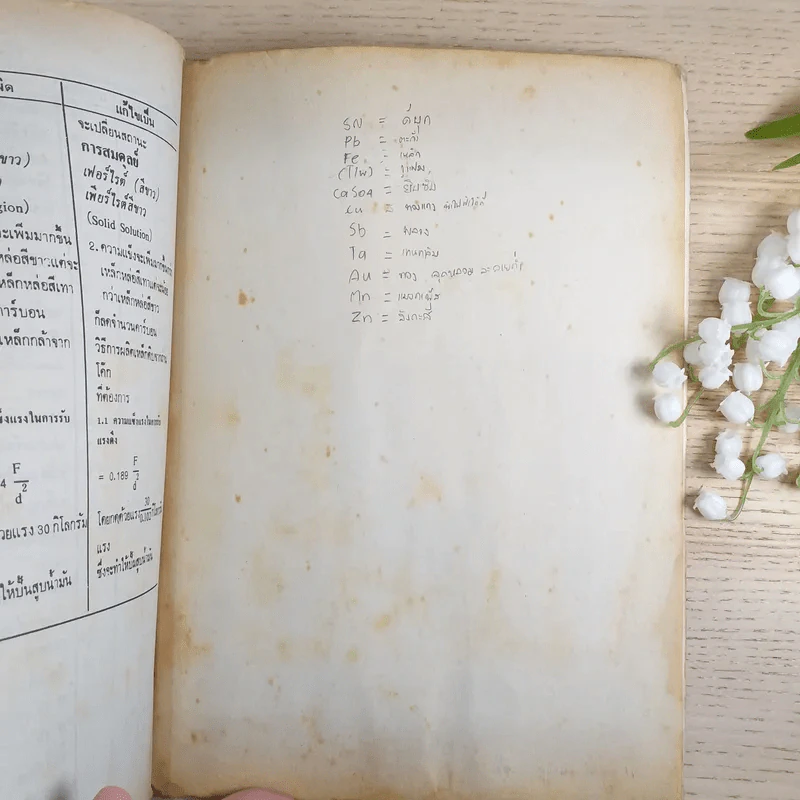 ผิด
แก้ไขเป็น
จะเปลี่ยนสถานะ
การสมดุลย์
เฟอร์ไรต์ (สีขาว)
เพียร์ไรต์สีขาว
(Solid Solution)
2. ความแข็งจะเพิ่มมากขึ้น
เหล็กหล่อสีเทาแต่จะน้อย
กว่าเหล็กหล่อสีขาว
ก็ลดจำนวนคาร์บอน
วิธีการผลิตเหล็กดิบจากถ่าน
โค๊ก
ที่ต้องการ
1.1 ความแข็งแรงในการรับ
แรงดึง
= 0.189 F/d²
แรง
ซึ่งจะทำให้ปั๊มสูบน้ำมัน
ขาว)
gion)
ะเพิ่มมากขึ้น
หล่อสีขาวแต่จะ
เหล็กหล่อสีเทา
คาร์บอน
เหล็กกล้าจาก
ข็งแรงในการรับ
4 F/d²
วยแรง 30 กิโลกรัม
ให้ปั๊มสูบน้ำมัน
SN = ดีบุก
Pb = ตะกั่ว
Fe = เหล็ก
(T/W) =
CaSO4 = ยิปซั่ม
cu = ทองแดง
Sb = พลวง
Ta = แทนทาลัม
Au = ทอง
Mn =
Zn = สังกะสี